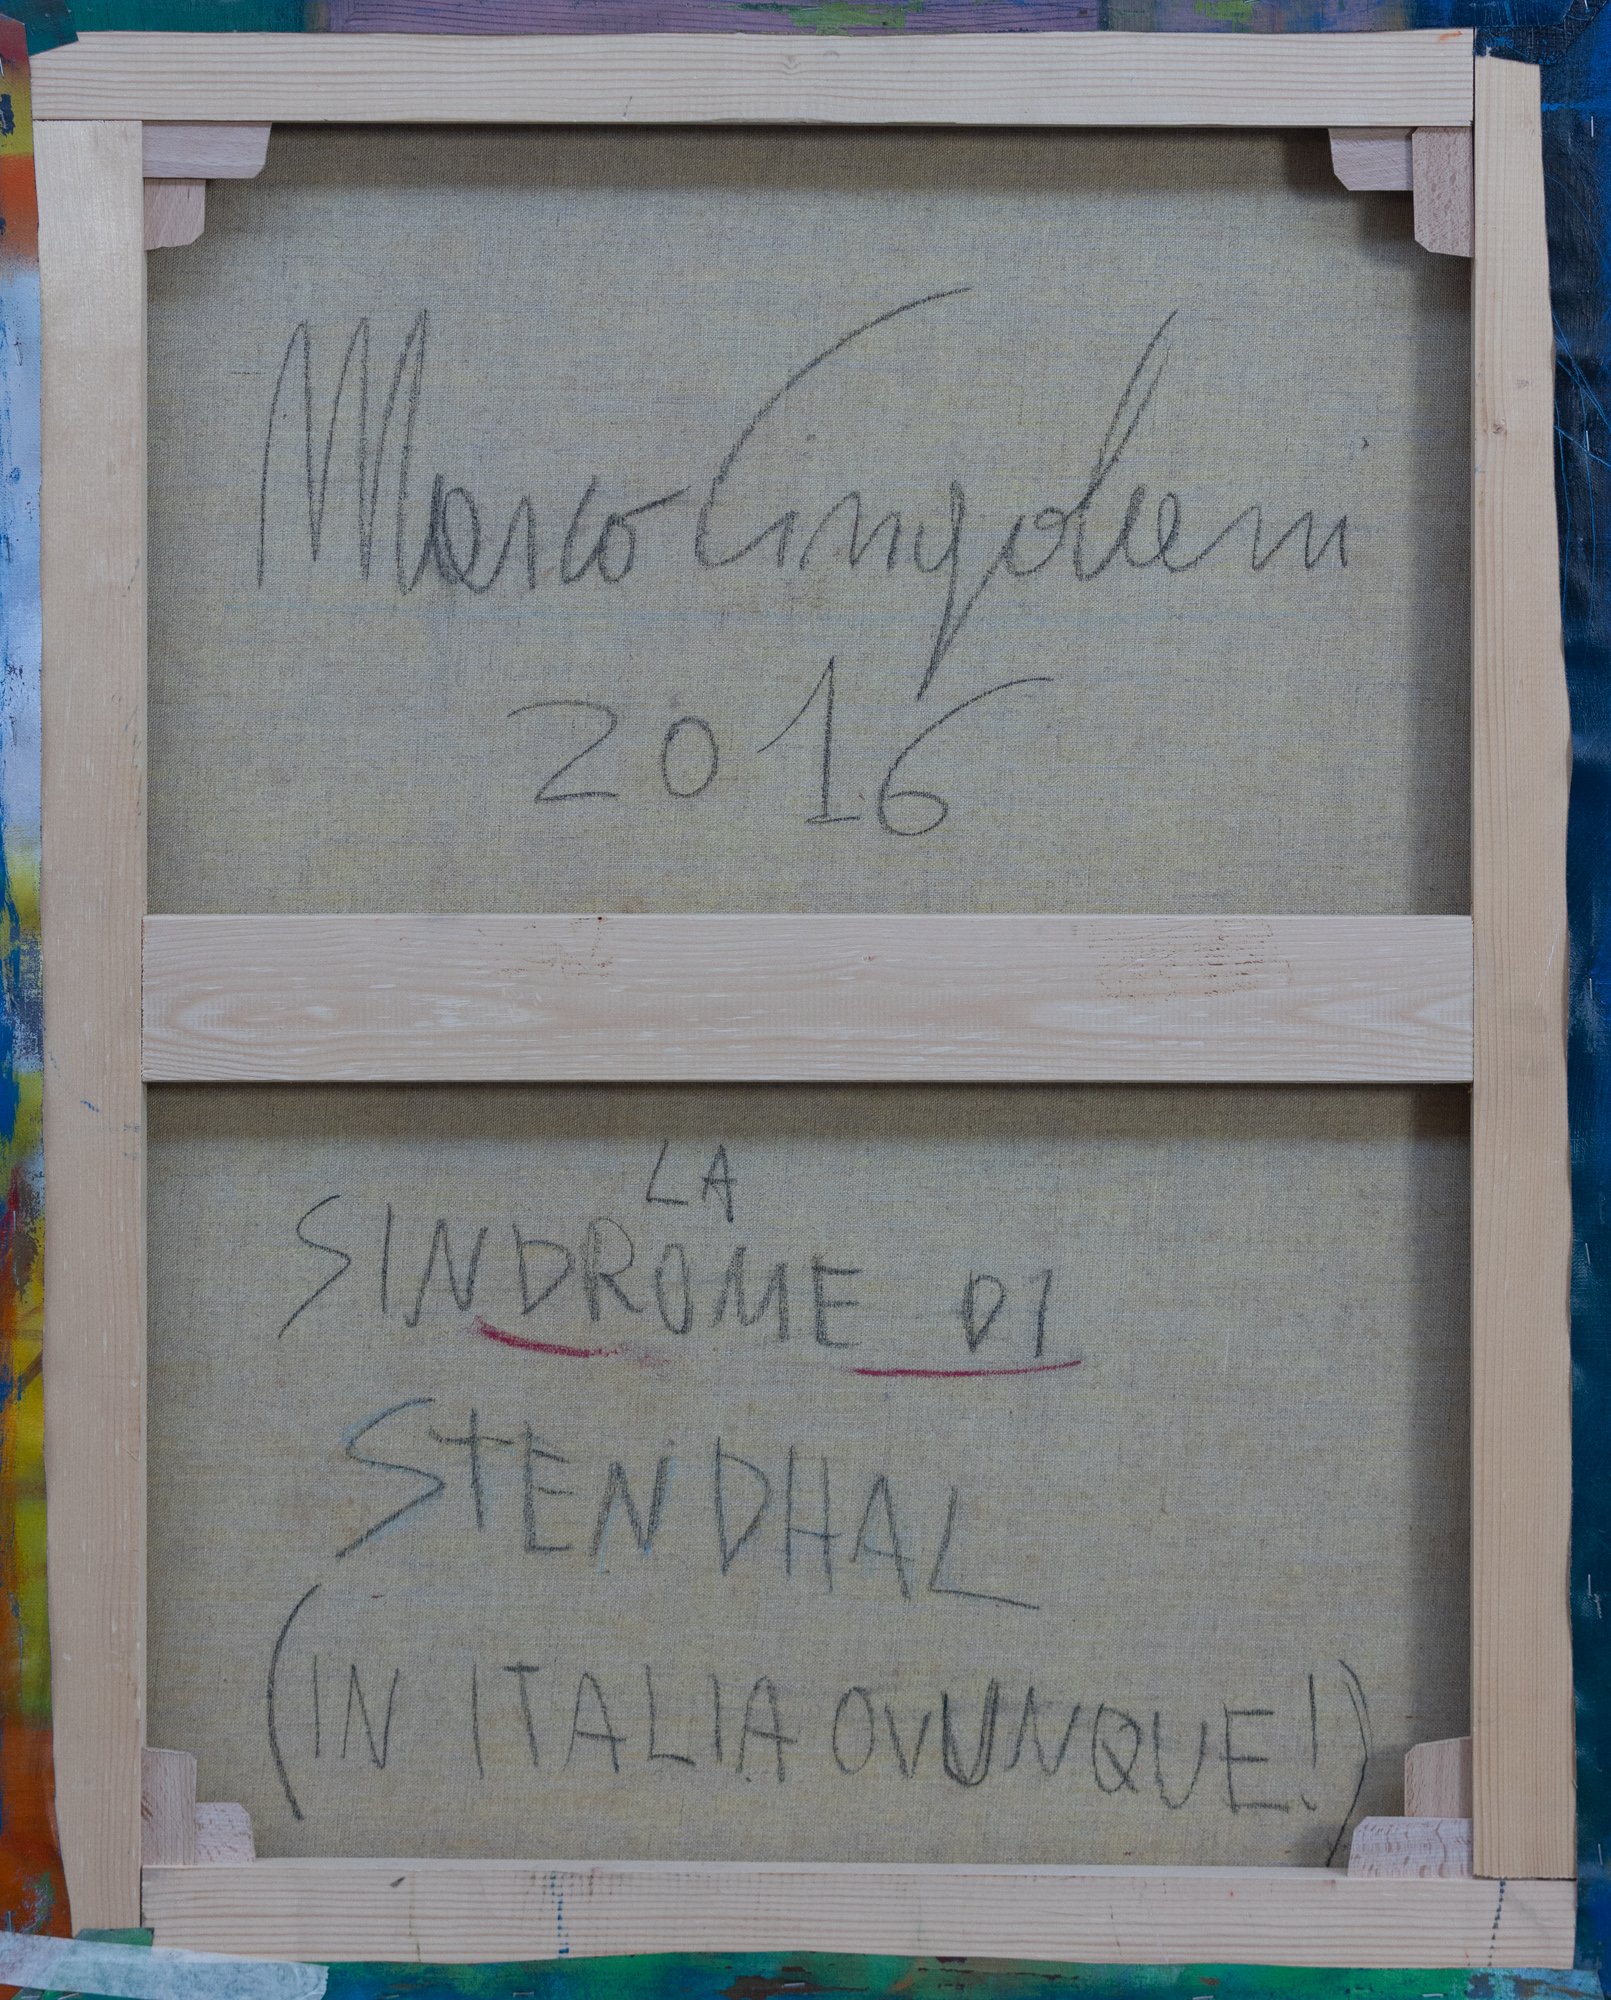 Marco Cingolani
2016
LA
SINDROME DI
STENDHAL
(IN ITALIA OVUNQUE!)